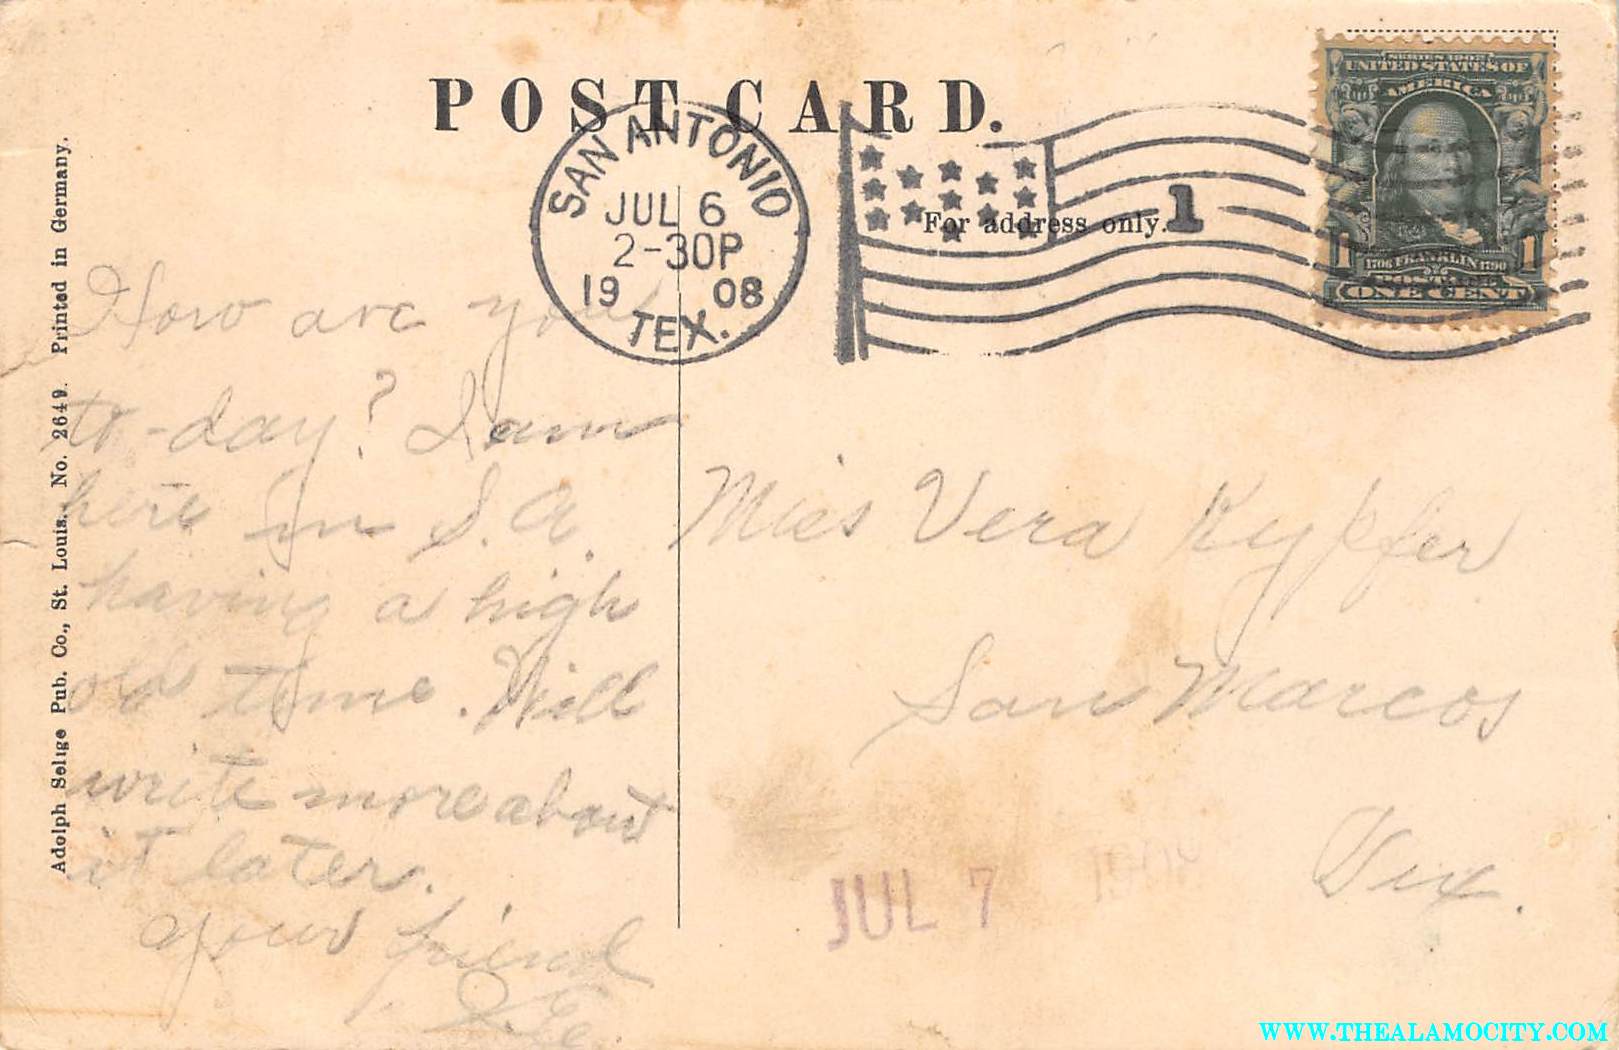 POST CARD.
SAN ANTONIO
JUL 6
2-30P
1908
TEX.
1
For address only.
SERIES 1902
UNITED STATES OF
AMERICA
1706 FRANKLIN 1790
1 1
ONE CENT
Adolph Selige Pub. Co., St. Louis. No. 2649. Printed in Germany.
How are you
to-day? I am
here in S.A.
having a high
old time. Will
write more about
it later.
Your friend
Miss Vera Kypfer
San Marcos
Tex.
JUL 7
WWW.THEALAMOCITY.COM